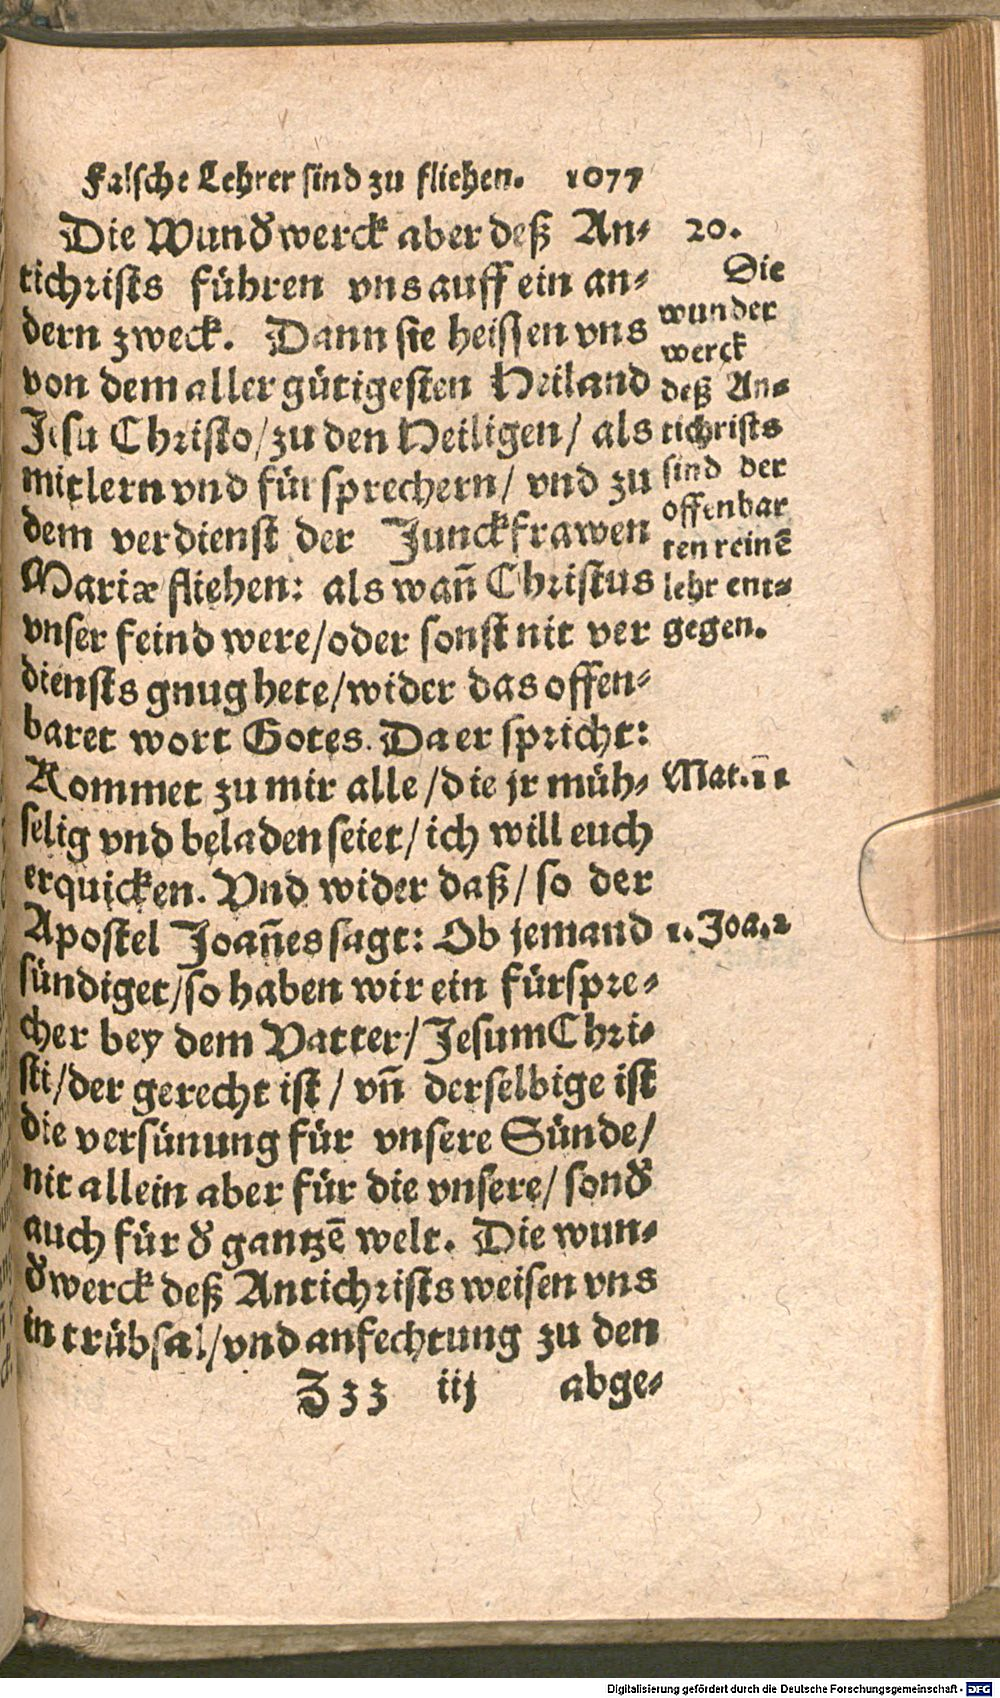 Falsche Lehrer sind zu fliehen. 1077
Die Wunďwerck aber deß An-
tichrists führen vns auff ein an-
dern zweck. Dann sie heissen vns
von dem aller gütigesten Heiland
Jesu Christo/ zu den Heiligen/ als
mitlern vnd fürsprechern/ vnd zu
dem verdienst der Junckfrawen
Mariæ fliehen: als wañ Christus
vnser feind were/ oder sonst nit ver
diensts gnug hete/ wider das offen-
baret wort Gotes. Da er spricht:
Kommet zu mir alle/ die jr müh-
selig vnd beladen seiet/ ich will euch
erquicken. Vnd wider daß/ so der
Apostel Joañes sagt: Ob jemand
sündiget/ so haben wir ein fürspre-
cher bey dem Vatter/ Jesum Chri-
sti/ der gerecht ist/ vñ derselbige ist
die versünung für vnsere Sünde/
nit allein aber für die vnsere/ sonď
auch für ď gantzē welt. Die wun-
ďwerck deß Antichrists weisen vns
in trübsal/ vnd anfechtung zu den
Zzz iij abge-
20.
Die
wunder
werck
deß An-
tichrists
sind der
offenbar
ten reinē
lehr ent-
gegen.
Mat. 11
1. Joa. 2
Digitalisierung gefördert durch die Deutsche Forschungsgemeinschaft - DFG